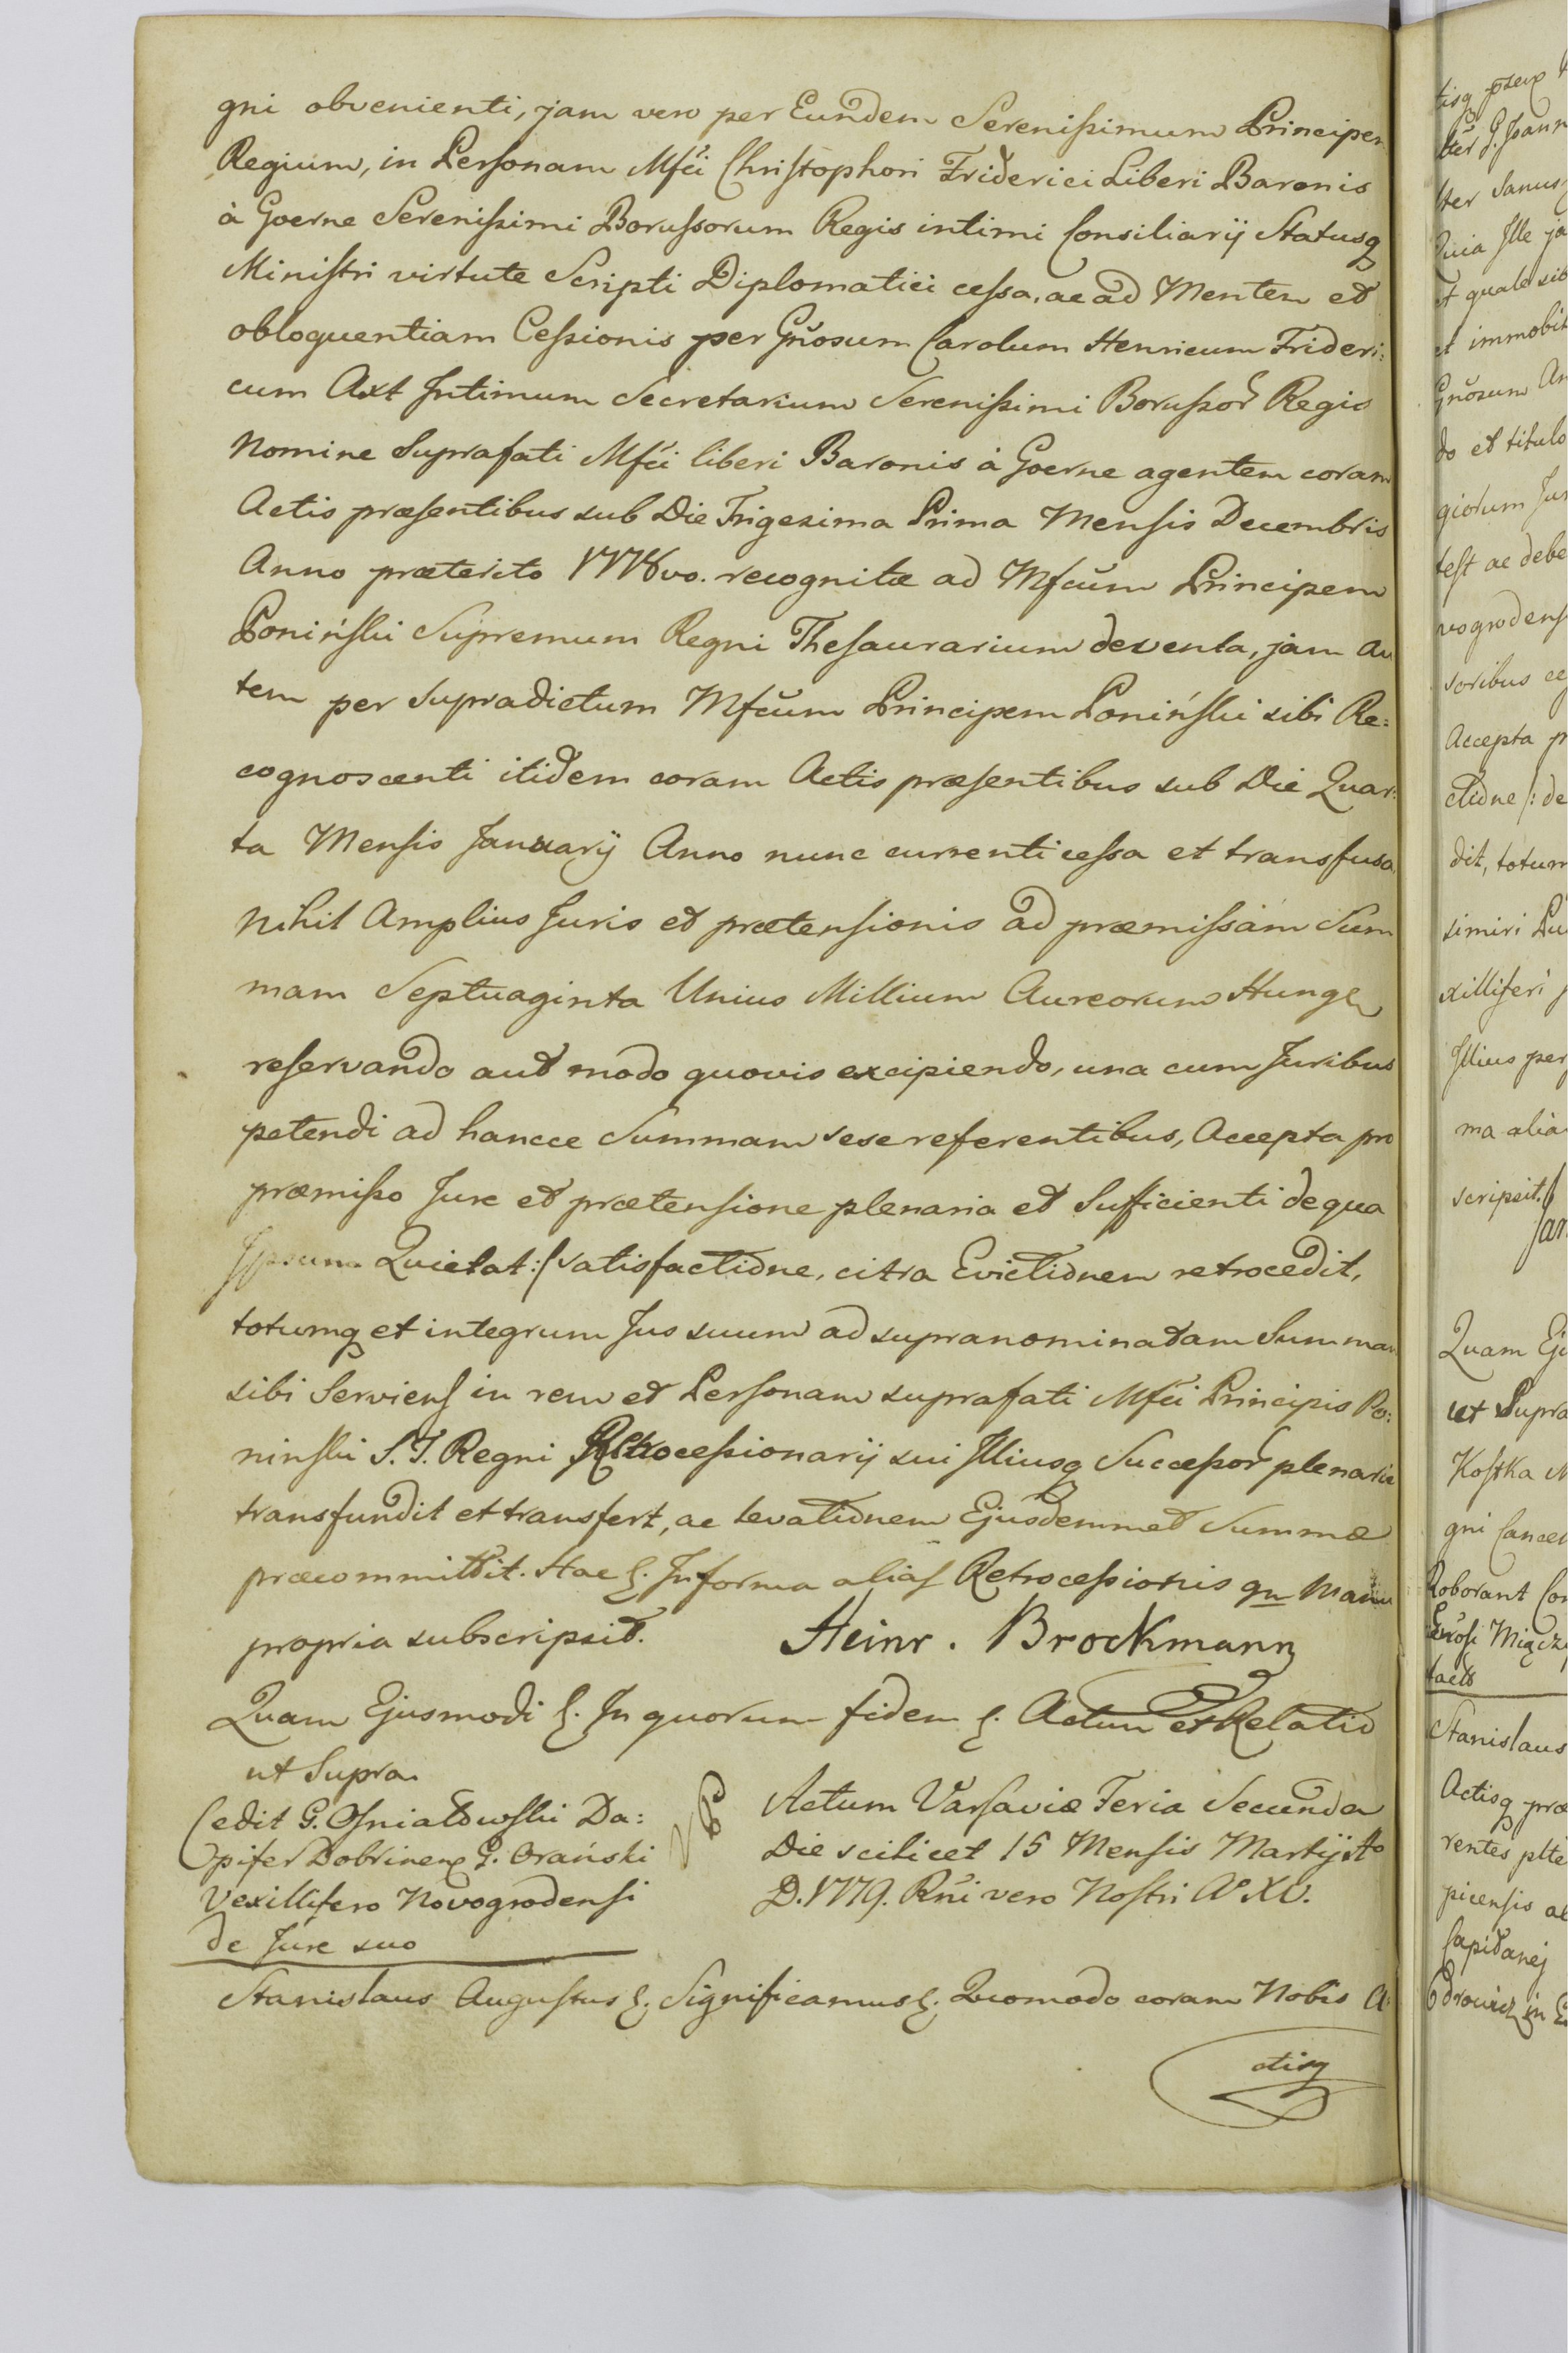 gni obvenienti, jam vero per Eundem Serenissimum Principem
Regium, in Personam Mfci Christophori Friderici Liberi Baronis
à Goerne Serenissimi Borussorum Regis intimi Consiliarij Statusq
Ministri virtute Scripti Diplomatici cessa, ac ad Mentem et
obloquentiam Cessionis per Gnosum Carolum Henricum Frideri:
cum Axt Intimum Secretarium Serenissimi Borussor Regis
Nomine Suprafati Mfci liberi Baronis à Goerne agentem coram
Actis præsentibus sub Die Trigesima Prima Mensis Decembris
Anno præterito 1778vo. recognitæ ad Mfcum Principem
Poniński Supremum Regni Thesaurarium deventa, jam au
tem per Supradictum Mfcum Principem Poniński sibi Re:
cognoscenti itidem coram Actis præsentibus sub Die Quar:
ta Mensis Januarij Anno nunc currenti cessa et transfusa
Nihil Amplius Juris et prætensionis ad præmissam Sum
mam Septuaginta Unius Millium Aureorum Hung
reservando aut modo quovis excipiendo, una cum Juribus
petendi ad hancce Summam sese referentibus, Accepta pro
præmisso Jure et prætensione plenaria et Sufficienti de qua
Ipsum Quietat :/ satisfactione, citra Evictionem retrocedit,
totumq et integrum Jus suum ad supranominatam Summam
sibi Serviens in rem et Personam suprafati Mfci Principis Po:
ninski S. T. Regni Retrocessionarij sui Illiusq Successor plenarie
transfundit et transfert, ac levationem Ejusdemmet Summæ
præcommittit. Hac &. In forma alias Retrocessionis qu Manu
propria subscripsit. Heinr. Brockmann
Quam Ejusmodi &. In quorum fidem &. Actum et Relatio
ut Supra.
Cedit G. Osniałowski Da:
pifer Dobrinen G. Orański
Vexillifero Novogrodensi
de Jure suo
Actum Varsaviæ Feria Secunda
Die scilicet 15 Mensis Martij Ao
D. 1779. Rni vero Nostri Ao XV.
Stanislaus Augustus &. Significamus &. Quomodo coram Nobis A:
ctisq
tisq
Januar
Quia Ille ja
et quale sib
et immobil
Gnosum An
do et titulo
giorum Jur
test ac debe
vogrodens
soribus ce
Accepta p
ctione /: de
dit, totum
simiri Lu
xilliferi
Illius per
ma alia
scripsit.
Jan
Quam Ej
ut Supra
Kostka M
gni Cancel
Roborant Con
Miącz
Stanislaus
Actisq præ
rentes plte
picensis al
Capitanej